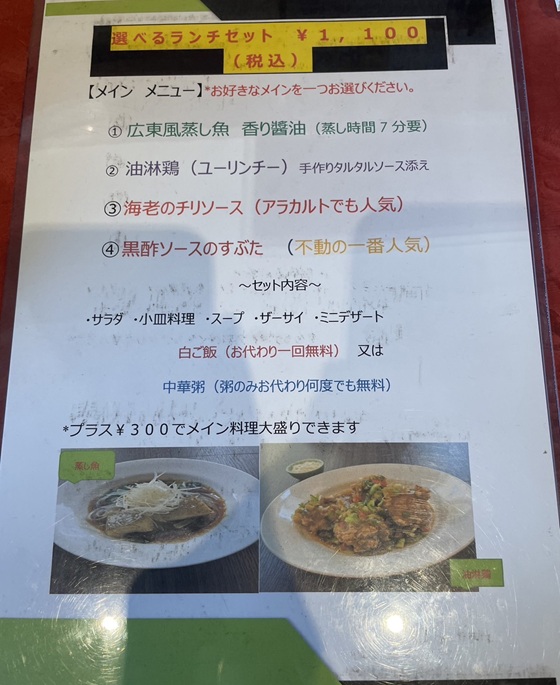 選べるランチセット ¥1,100
(税込)
【メイン メニュー】*お好きなメインを一つお選びください。
① 広東風蒸し魚 香り醬油(蒸し時間7分要)
② 油淋鶏(ユーリンチー)手作りタルタルソース添え
③ 海老のチリソース(アラカルトでも人気)
④ 黒酢ソースのすぶた (不動の一番人気)
～セット内容～
・サラダ ・小皿料理 ・スープ ・ザーサイ ・ミニデザート
白ご飯(お代わり一回無料) 又は
中華粥(粥のみお代わり何度でも無料)
*プラス¥300でメイン料理大盛りできます
蒸し魚
油淋鶏